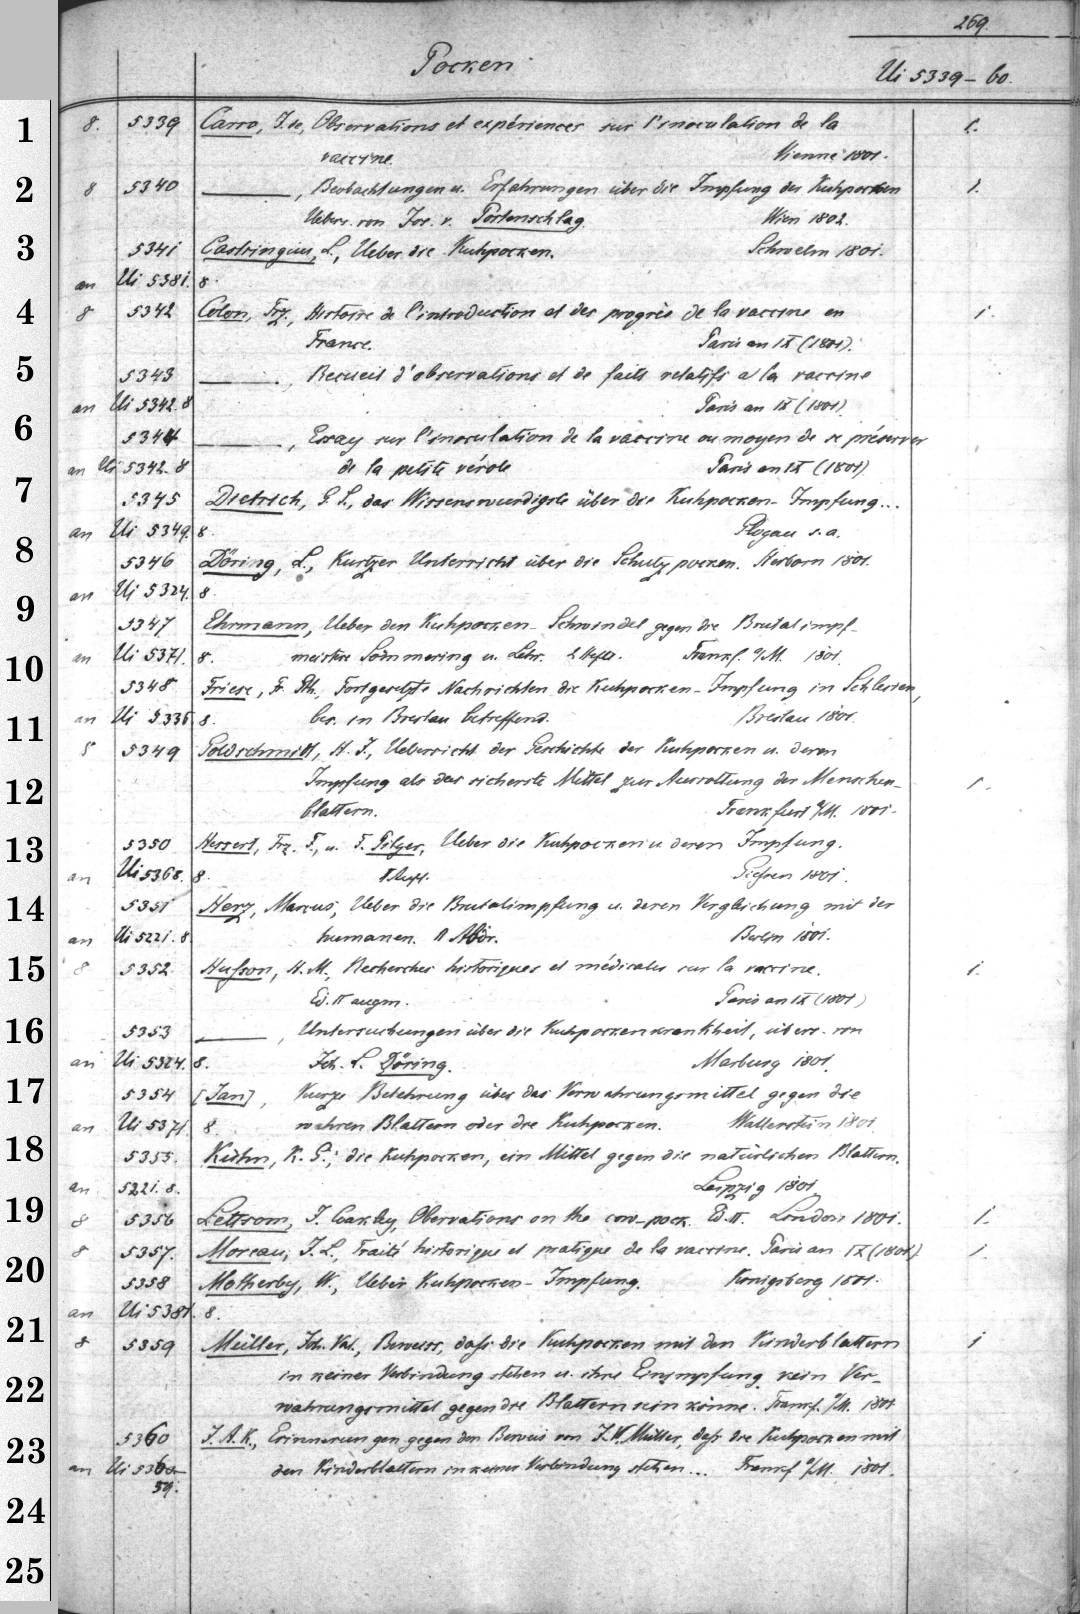 269.
Pocken
Ui 5339-60.
1 8. 5339 Carro, J. de, Observations et expériences sur l'inoculation de la 1.
vaccine. Vienne 1801.
2 8 5340 ———, Beobachtungen u. Erfahrungen über die Impfung der Kuhpocken 1.
Uebers. von Jos. v. Portenschlag. Wien 1802.
3 5341 Castringius, L., Ueber die Kuhpocken. Schwelm 1801.
an Ui 5381. 8.
4 8 5342 Colon, Frz., Histoire de l'introduction et des progrès de la vaccine en 1.
France. Paris an IX (1801).
5 5343 ———, Recueil d'observations et de faits relatifs a la vaccine
an Ui 5342. 8 Paris an IX (1801).
6 5344 ———, Essay sur l'inoculation de la vaccine ou moyen de se préserver
an Ui 5342. 8 de la petite vérole Paris an IX (1801)
7 5345 Dietrich, G. L., das Wissenswürdigste über die Kuhpocken-Impfung...
an Ui 5349. 8. Glogau s. a.
8 5346 Döring, L., Kurtzer Unterricht über die Schutzpocken. Herborn 1801.
an Ui 5324. 8.
9 5347 Ehrmann, Ueber den Kuhpocken-Schwindel gegen die Brutalimpf-
10 an Ui 5371. 8. meister Sömmering u. Lehr. 2 Hefte. Frankf. a/M. 1801.
5348 Friese, Fr. Gth., Fortgesetzte Nachrichten die Kuhpocken-Impfung in Schlesien,
11 an Ui 5336. 8. bes. in Breslau betreffend. Breslau 1801.
8 5349 Goldschmidt, H. J., Uebersicht der Geschichte der Kuhpocken u. deren
12 Impfung als der sicherste Mittel zur Ausrottung der Menschen- 1.
blattern. Frankfurt a/M. 1801.
13 5350 Hessert, Frz. F., u. F. Pilger, Ueber die Kuhpocken u. deren Impfung.
an Ui 5368. 8. Giessen 1801.
14 5351 Herz, Marcus, Ueber die Brutalimpfung u. deren Vergleichung mit der
an Ui 5221. 8 humanen. II Abdr. Berlin 1801.
15 8 5352 Husson, H. M., Recherches historiques et médicales sur la vaccine. 1.
Ed. II augm. Paris an IX (1801)
16 5353 ———, Untersuchungen über die Kuhpockenkrankheit, übers. von
an Ui 5324. 8. Joh. L. Döring. Marburg 1801.
17 5354 [Jan], Kurze Belehrung über das Verwahrungsmittel gegen die
an Ui 5371. 8. wahren Blattern oder die Kuhpocken. Wallerstein 1801
18 5355. Kühn, K. G., die Kuhpocken, ein Mittel gegen die natürlichen Blattern.
an 5221. 8. Leipzig 1801
19 8 5356 Lettsom, J. Coakley, Obervations on the cow-pock. Ed. II. London 1801. 1.
8 5357. Moreau, J. L., Traité historique et pratique de la vaccine. Paris an IX (1801) 1.
20 5358 Motherby, W., Ueber Kuhpocken-Impfung. Königsberg 1801.
an Ui 5381. 8.
21 8 5359 Müller, Joh. Val., Beweiss, dass die Kuhpocken mit den Kinderblattern 1
22 in keiner Verbindung stehen u. ihre Einimpfung kein Ver-
wahrungsmittel gegen die Blattern sein könne. Frankf. a/M. 1801
23 5360 J. A. K., Erinnerungen gegen den Beweis von J. V. Müller, dass die Kuhpocken mit
an Ui 5360 den Kinderblattern in keiner Verbindung stehen... Frankf a/M. 1801.
59.
24
25